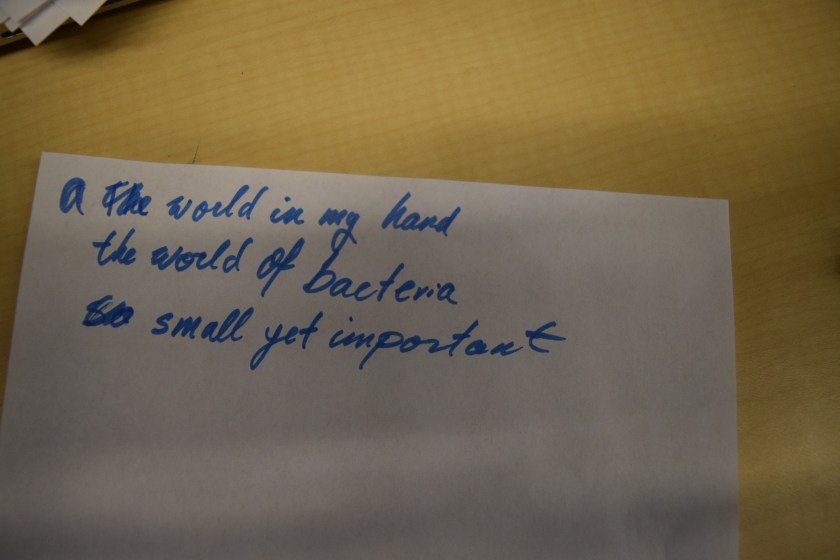 a the world in my hand
the world of bacteria
so small yet important